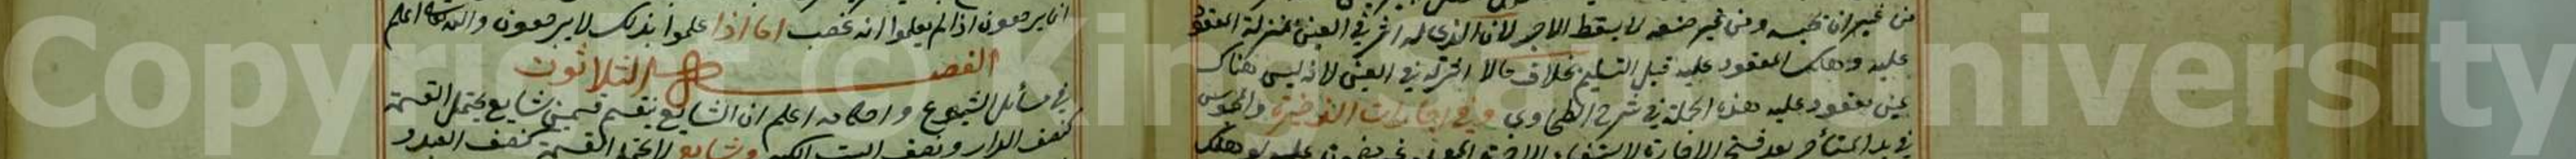 من غير ان يحبسه ومن غير صنعه لا يسقط الاجر لان الذي له اثر في العين بمنزلة المعقود
عليه وهلك المعقود عليه قبل التسليم بخلاف ما لا اثر له في العين لانه ليس هناك
عين معقود عليه هذه الجملة في شرح الطحاوي وفي اجارات
في يد المستأجر بعد فسخ الاجارة
انما يرجعون اذا لم يعلموا انه غصب اما اذا علموا بذلك لا يرجعون والله اعلم
الفصل الثلاثون
في مسائل الشيوع واحكامه اعلم ان الشايع ينقسم قسمين شايع يحتمل القسمة
كنصف الدار ونصف البيت الكبير وشايع لا يحتمل القسمة كنصف العبد و
Copyright © King Saud University